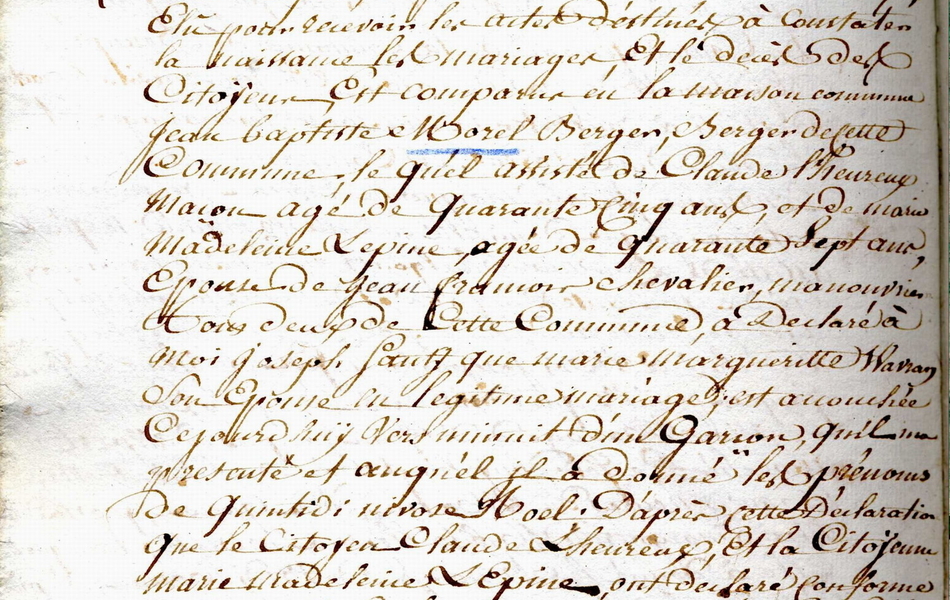 Elu pour recevoir les actes déstinés à Constater
la naissance les mariages Et le décès des
Citoyens, Est comparu en la maison commune
jean baptiste Morel Berger, Berger de cette
Commune, le quel assisté de Claude l'heureux
Maçon agé de quarante Cinq ans, et de marie
Madeleine Lepine, agée de quarante Sept ans,
Epouse de jean francois chevalier, manouvrier
tous deux de Cette Commune, a Declaré à
moi joseph que marie margueritte Wavran
Son Epouse en legitime mariage, est accouchée
Cejourd'huÿ vers minuit d'un Garson, qu'il ma
presenté et auquel il a donné les prénoms
de quintidi nivose Noel. D'après cette Déclaration
que le Citoyen Claude Lheureux, Et la Citoÿenne
marie madeleine LEpine ont declaré conforme